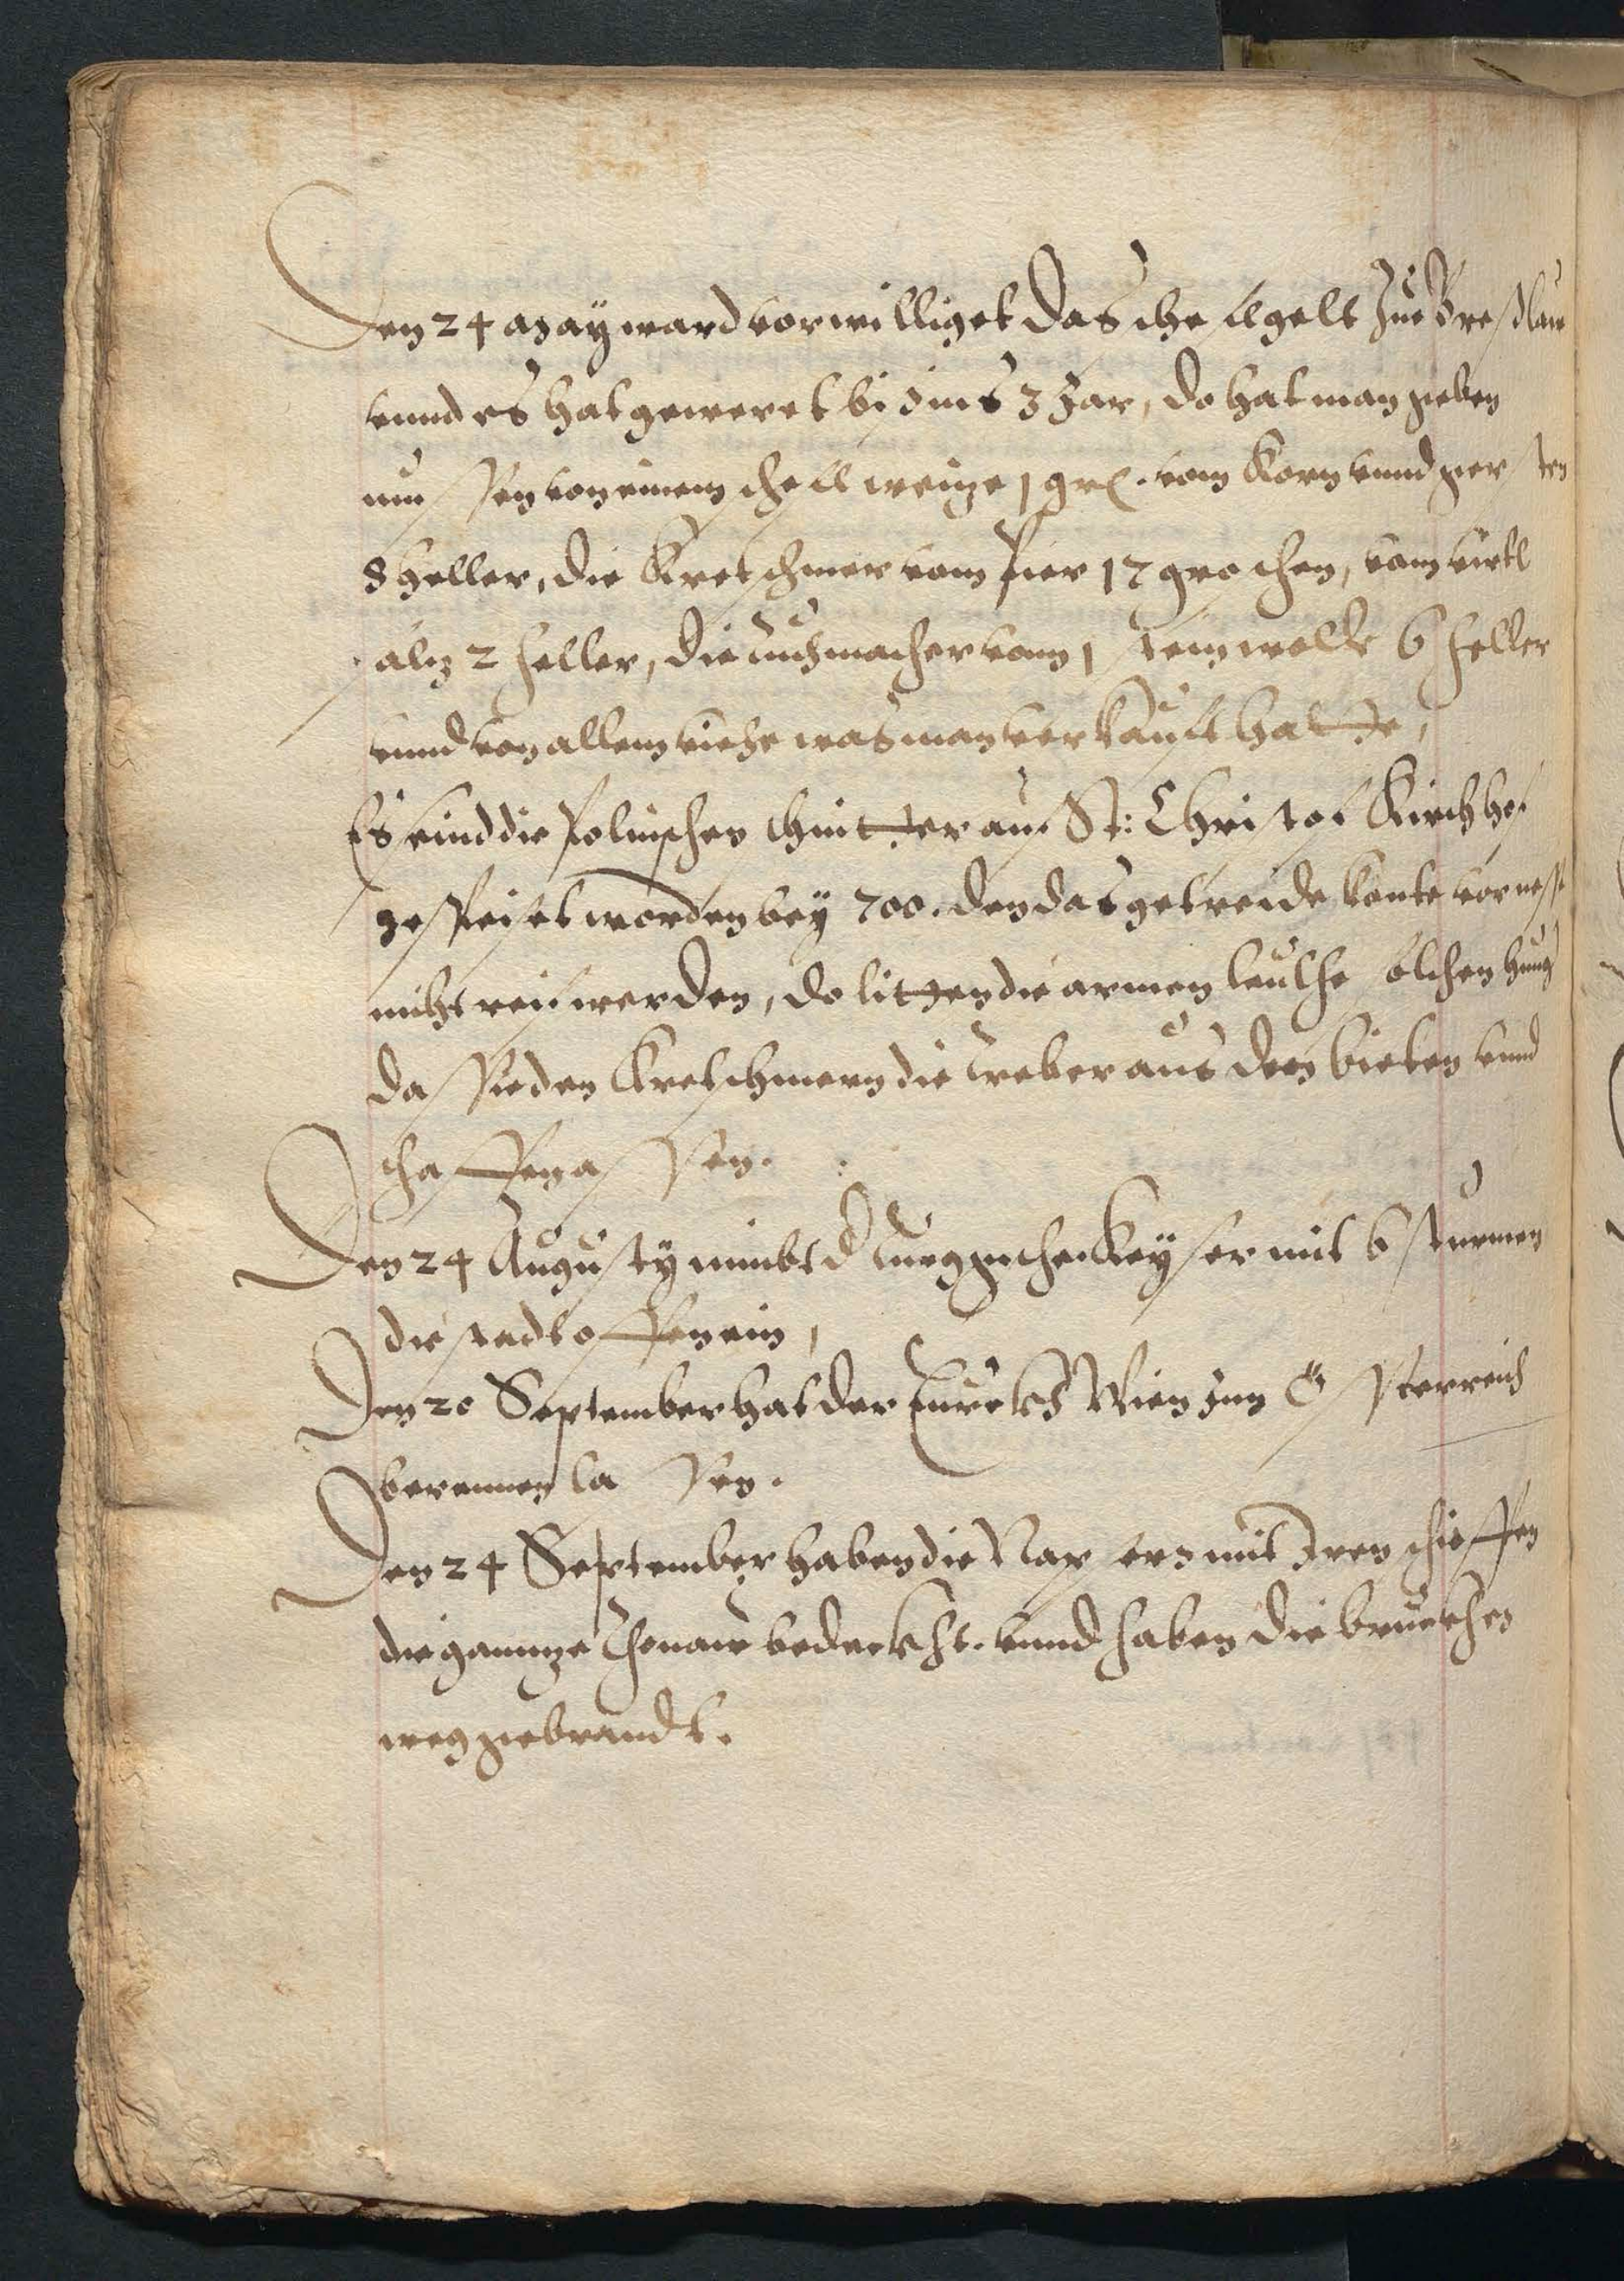 Den 24 May ward vorwilliget das scheffelgelt Zue Breslau
vnnd es hat geweret bis ins 3 Jar, do hat man geben
mussen von einem scheffl weize 1 grl. vom Korn vnnd gersten
8 heller, die Kretschmer vom bier 12 groschen, vom virtl
saltz 2 heller, die tuchmacher vom 1 stein wolle 6 heller
vnnd von allem viehe was man verkaufft hatte,
Es sind die Polnischen schnitter auf St: Christof Kirchhof
gespeiset worden bey 700. den das getreide konte vor nesse
nicht reif werden, do litten die armen leuthe solchen hung
das sie den Kretschmern die treber aus den bieten vnnd
schaffen assen.
Den 24 Augusty nimbt d Turggische Keyser mit 6 sturmen
die stadt offen ein,
Den 20 September hat der Turckh Wien inn Össterreich
berennen lassen.
Den 24 September haben die Nassern mit Iren schieffen
die gannze Thonaw bedeckht. vnnd haben die brucken
weg gebrandt.